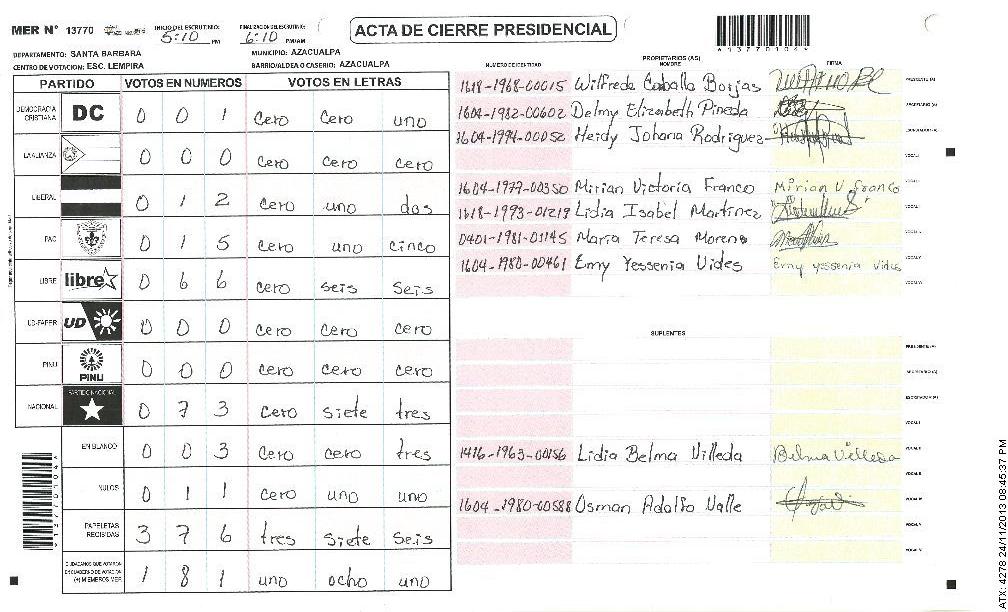 MER N° 13770 INICIO DEL ESCRUTINIO: 5:10 PM FINALIZACION ESCRUTINIO: 6:10 PM/AM
ACTA DE CIERRE PRESIDENCIAL
*13770104*
DEPARTAMENTO: SANTA BARBARA MUNICIPIO: AZACUALPA
CENTRO DE VOTACION: ESC. LEMPIRA BARRIO/ALDEA O CASERIO: AZACUALPA
PARTIDO VOTOS EN NUMEROS VOTOS EN LETRAS
DEMOCRACIA CRISTIANA DC 0 0 1 cero cero uno
LA ALIANZA 0 0 0 cero cero cero
LIBERAL 0 1 2 cero uno dos
PAC 0 1 5 cero uno cinco
LIBRE libre 0 6 6 cero seis seis
UD-FAPER UD 0 0 0 cero cero cero
PINU PINU 0 0 0 cero cero cero
NACIONAL PARTIDO NACIONAL 0 7 3 cero siete tres
EN BLANCO 0 0 3 cero cero tres
NULOS 0 1 1 cero uno uno
PAPELETAS RECIBIDAS 3 7 6 tres siete seis
CIUDADANOS QUE VOTARON EN CUADERNO DE VOTACION (+) MIEMBROS MER 1 8 1 uno ocho uno
*13770104*
PROPIETARIOS (AS)
NUMERO DE IDENTIDAD NOMBRE FIRMA
1618-1968-00015 Wilfredo Caballo Borjas PRESIDENTE (A)
1604-1982-00602 Delmy Elizabeth Pineda SECRETARIO (A)
1604-1994-00052 Heidy Johana Rodriguez ESCRUTADOR (A)
VOCAL I
1604-1979-00350 Mirian Victoria Franco Mirian V franco
1618-1993-01219 Lidia Isabel Martinez
0401-1981-01145 Maria Teresa Moreno
1604-1980-00461 Emy Yessenia Vides Emy yessenia vides
SUPLENTES
PRESIDENTE (A)
SECRETARIO (A)
ESCRUTADOR (A)
VOCAL I
1416-1963-00156 Lidia Belma Villeda Belma Villeda
1604-1980-00588 Osman Adolfo Valle
VOCAL V
ATX: 4278 24/11/2013 08:45:37 PM